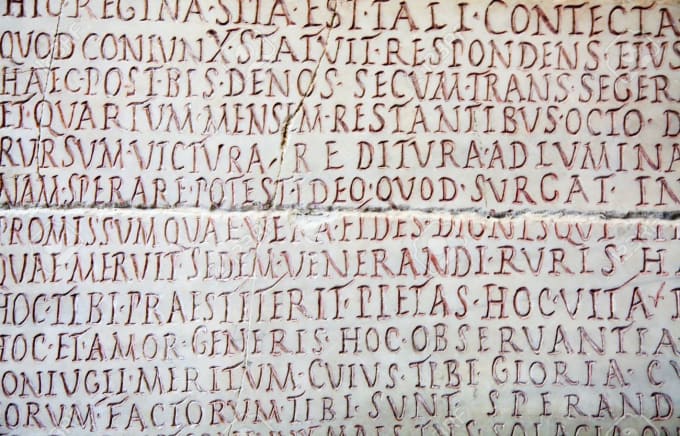 HIC·REGINA·SITA·EST·TALI·CONTECTA
QUOD·CONIUNX·STATUIT·RESPONDENS·EIUS
HAEC·POST·BIS·DENOS·SECUM·TRANS·SEGER
ET·QUARTUM·MENSEM·RESTANTIBUS·OCTO·D
RURSUM·VICTURA·REDITURA·AD·LUMINA
NAM·SPERARE·POTEST·IDEO·QUOD·SURGAT·IN
PROMISSUM·QUAE·VERA·FIDES·DIGNISQUE
QUAE·MERUIT·SEDEM·VENERANDI·RURIS·HA
HOC·TIBI·PRAESTITERIT·PIETAS·HOC·VITA
HOC·ET·AMOR·GENERIS·HOC·OBSERVANTIA
CONIUGII·MERITUM·CUIUS·TIBI·GLORIA·CU
HORUM·FACTORUM·TIBI·SUNT·SPERAND
SOLACIO